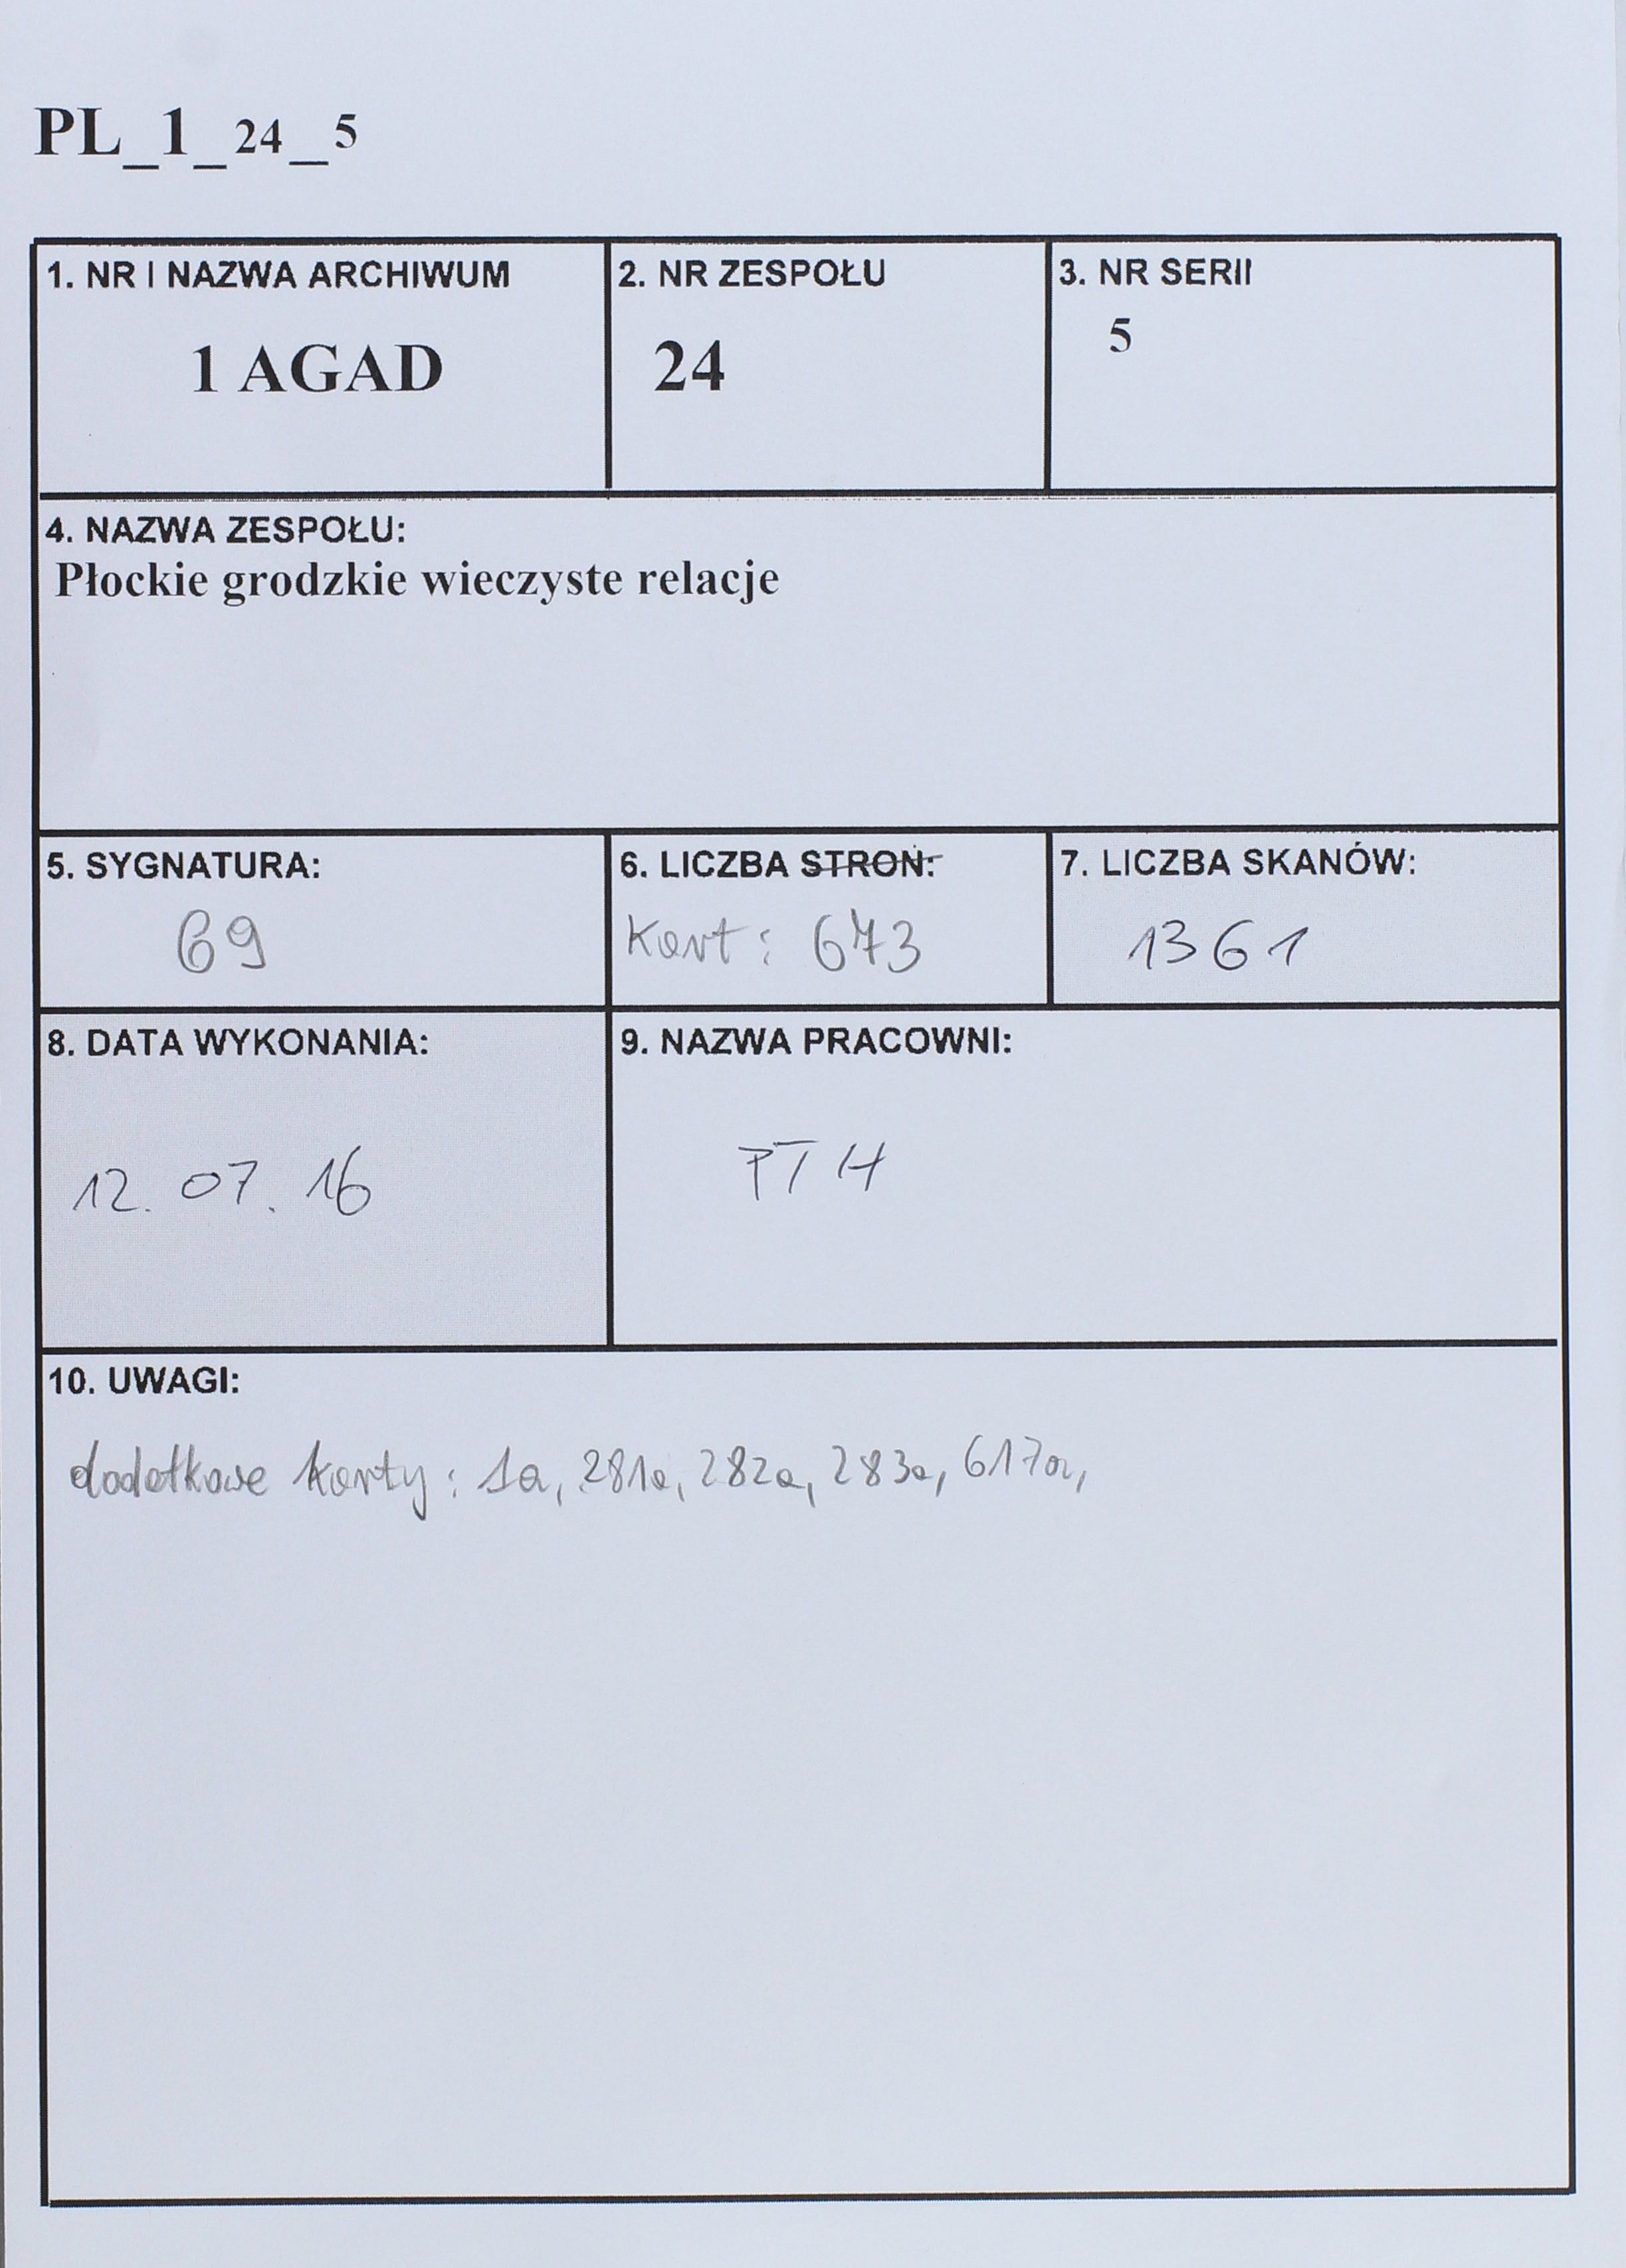 PL_1_24_5
1. NR I NAZWA ARCHIWUM
1 AGAD
2. NR ZESPOŁU
24
3. NR SERII
5
4. NAZWA ZESPOŁU:
Płockie grodzkie wieczyste relacje
5. SYGNATURA:
69
6. LICZBA STRON:
Kart: 673
7. LICZBA SKANÓW:
1361
8. DATA WYKONANIA:
12. 07. 16
9. NAZWA PRACOWNI:
PTH
10. UWAGI:
dodatkowe karty: 1a, 281a, 282a, 283a, 617a,